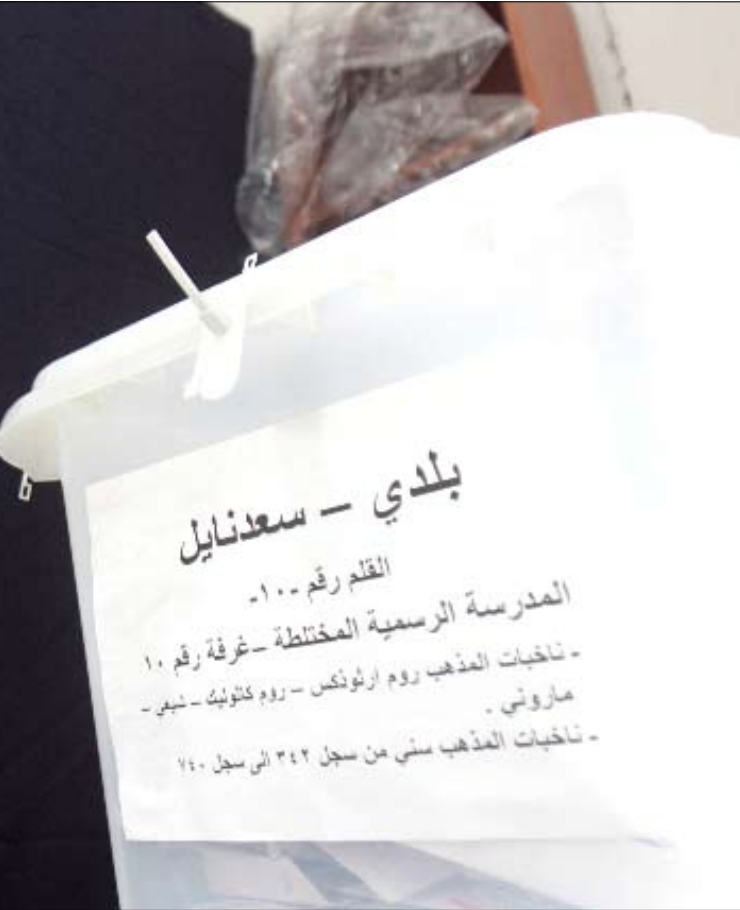 بلدي – سعدنايل
القلم رقم -١٠-
المدرسة الرسمية المختلطة – غرفة رقم ١٠
- ناخبات المذهب روم ارثوذكس – روم كاثوليك – شيعي –
ماروني .
- ناخبات المذهب سني من سجل ٣٤٢ الى سجل ٧٤٠